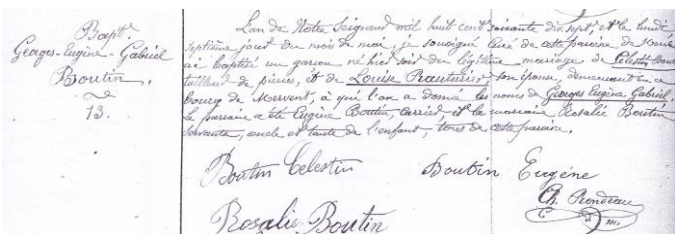 Bapt.
Georges-Eugène-Gabriel
Boutin.
13.
L'an de Notre Seigneur mil huit cent soixante dix sept, et le lundi
septième jour du mois de mai, je soussigné curé de cette paroisse de
ai baptisé un garçon né hier soir du légitime mariage de Célestin Bout
tailleur de pierres, et de Louise son épouse, demeurant en ce
bourg de Mervent, à qui l'on a donné les noms de Georges Eugène Gabriel.
Le parrain a été Eugène Boutin, carrier, et la marraine Rosalie Boutin
servante, oncle et tante de l'enfant, tous de cette paroisse.
Boutin Celestin Boutin Eugène
Ch. Rondeau
Rosalie Boutin